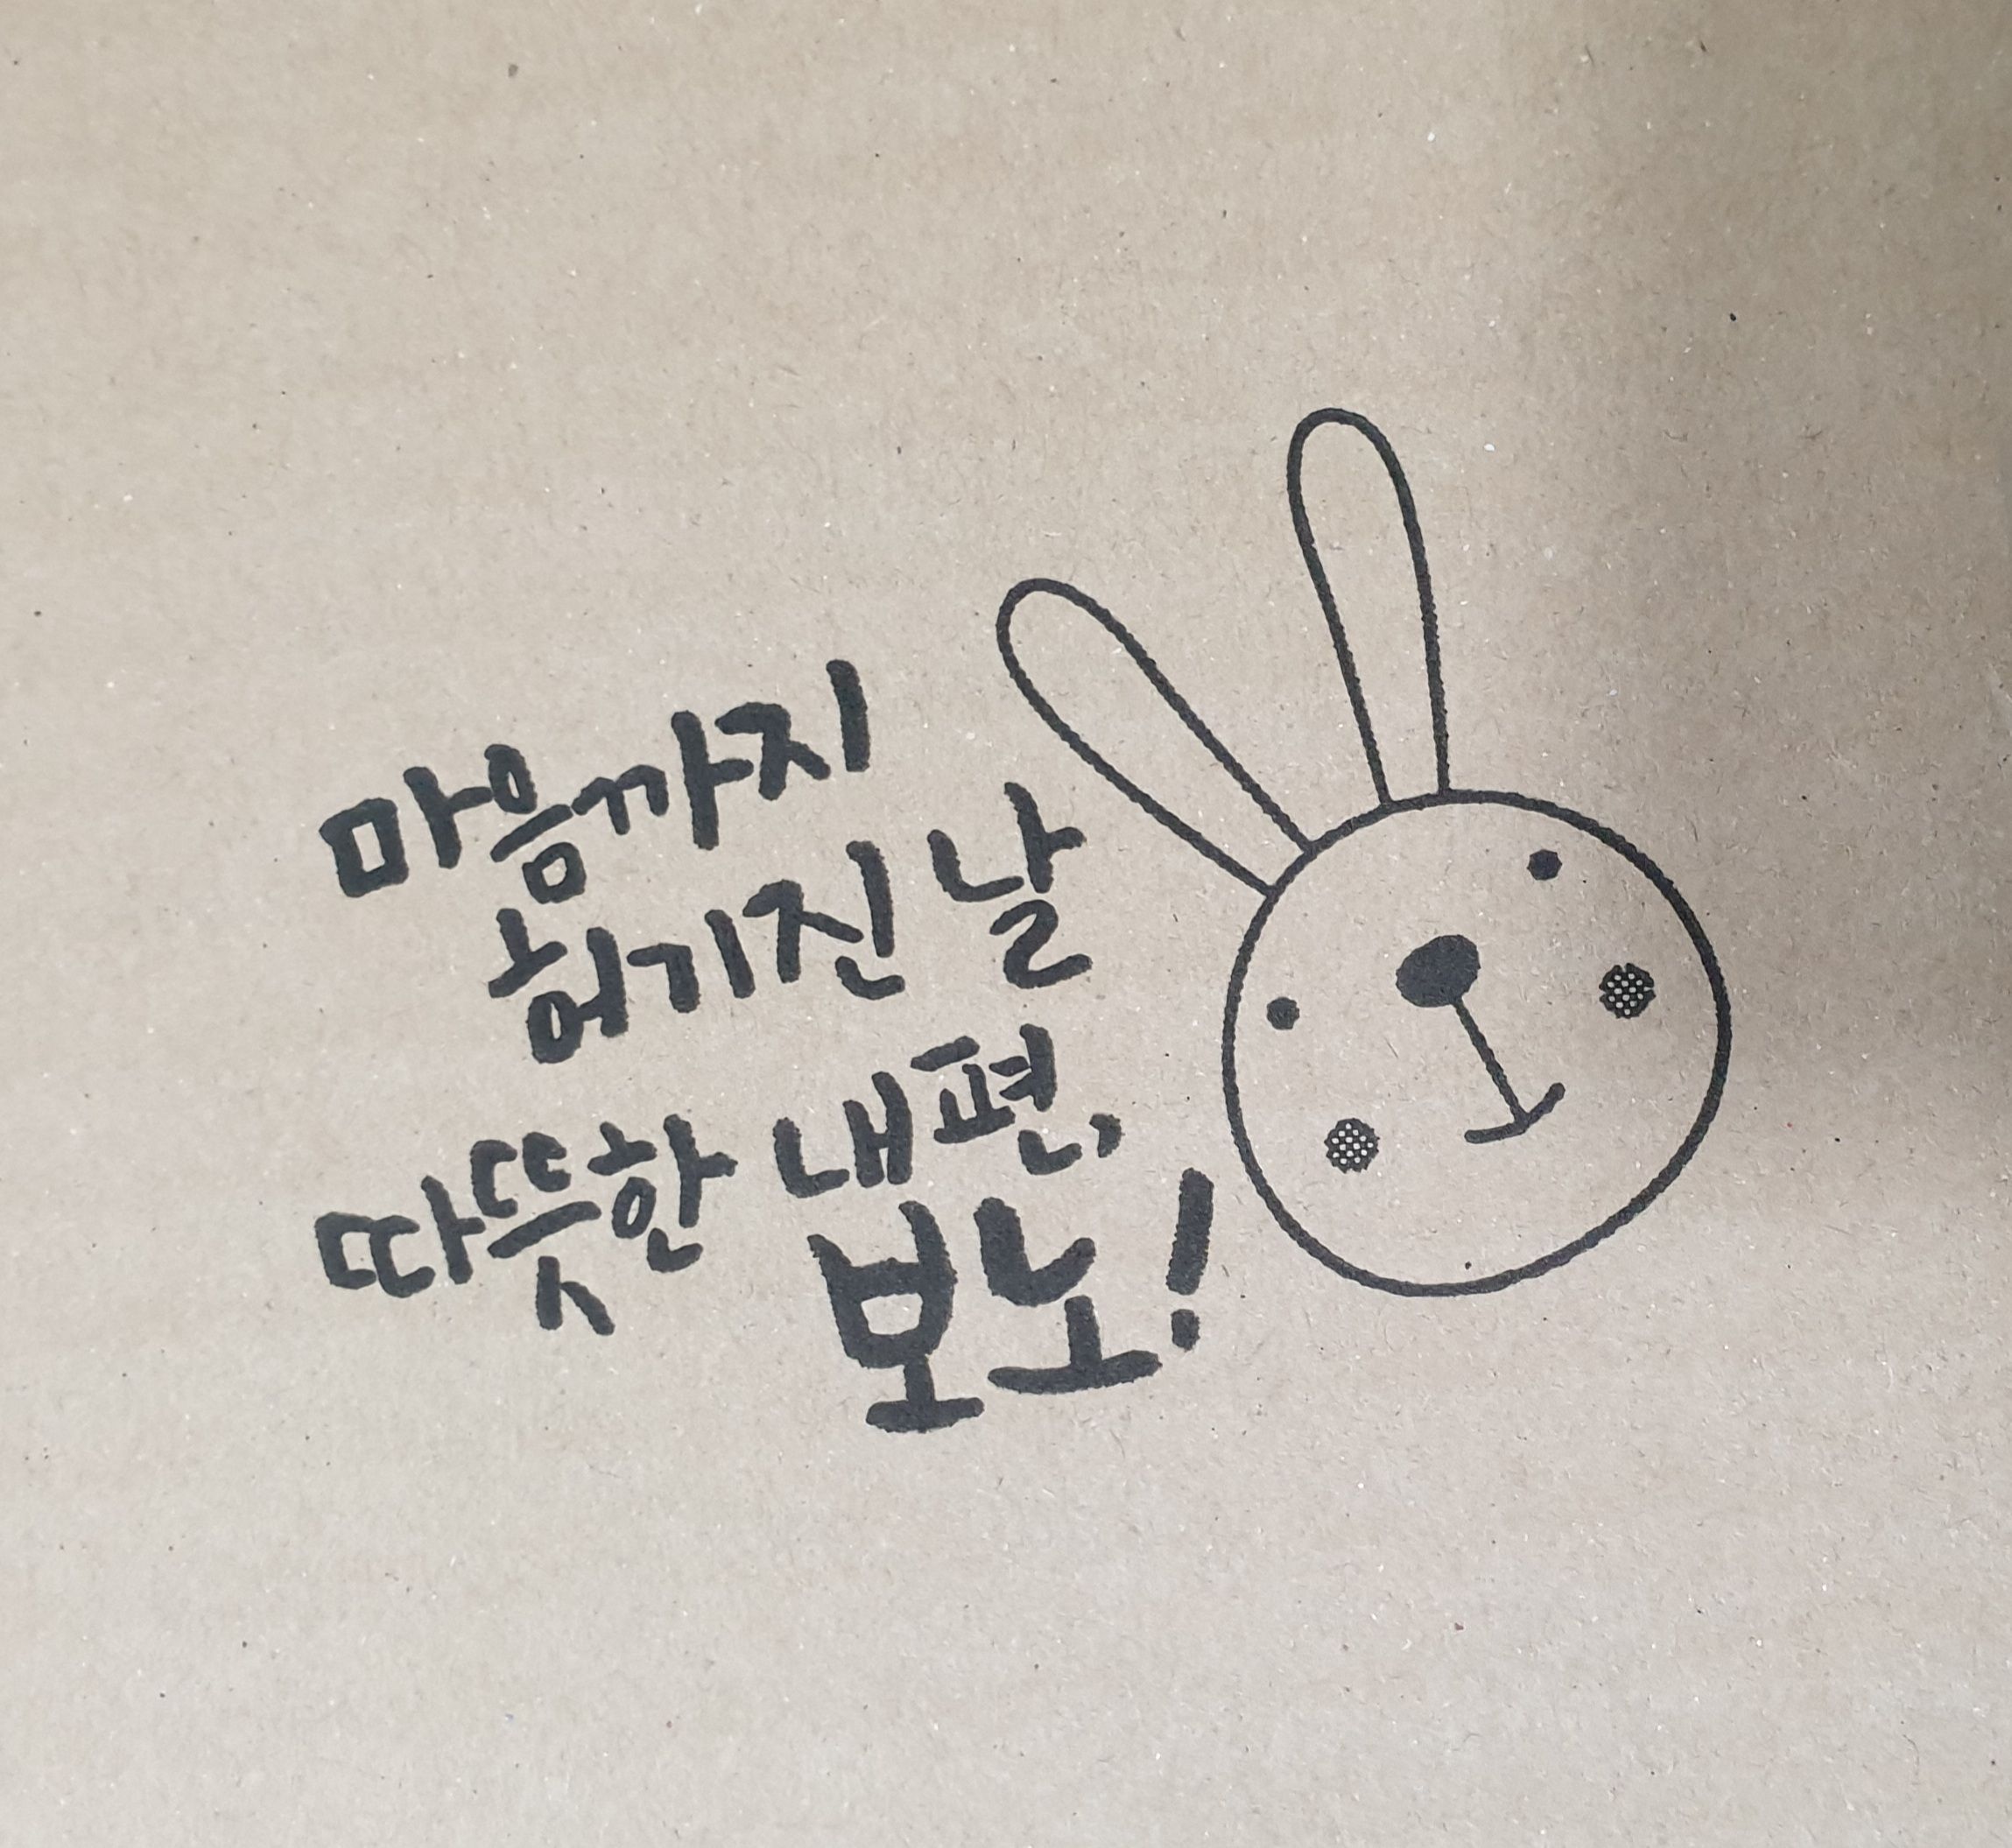 마음까지
허기진 날
따뜻한 내편,
보노!